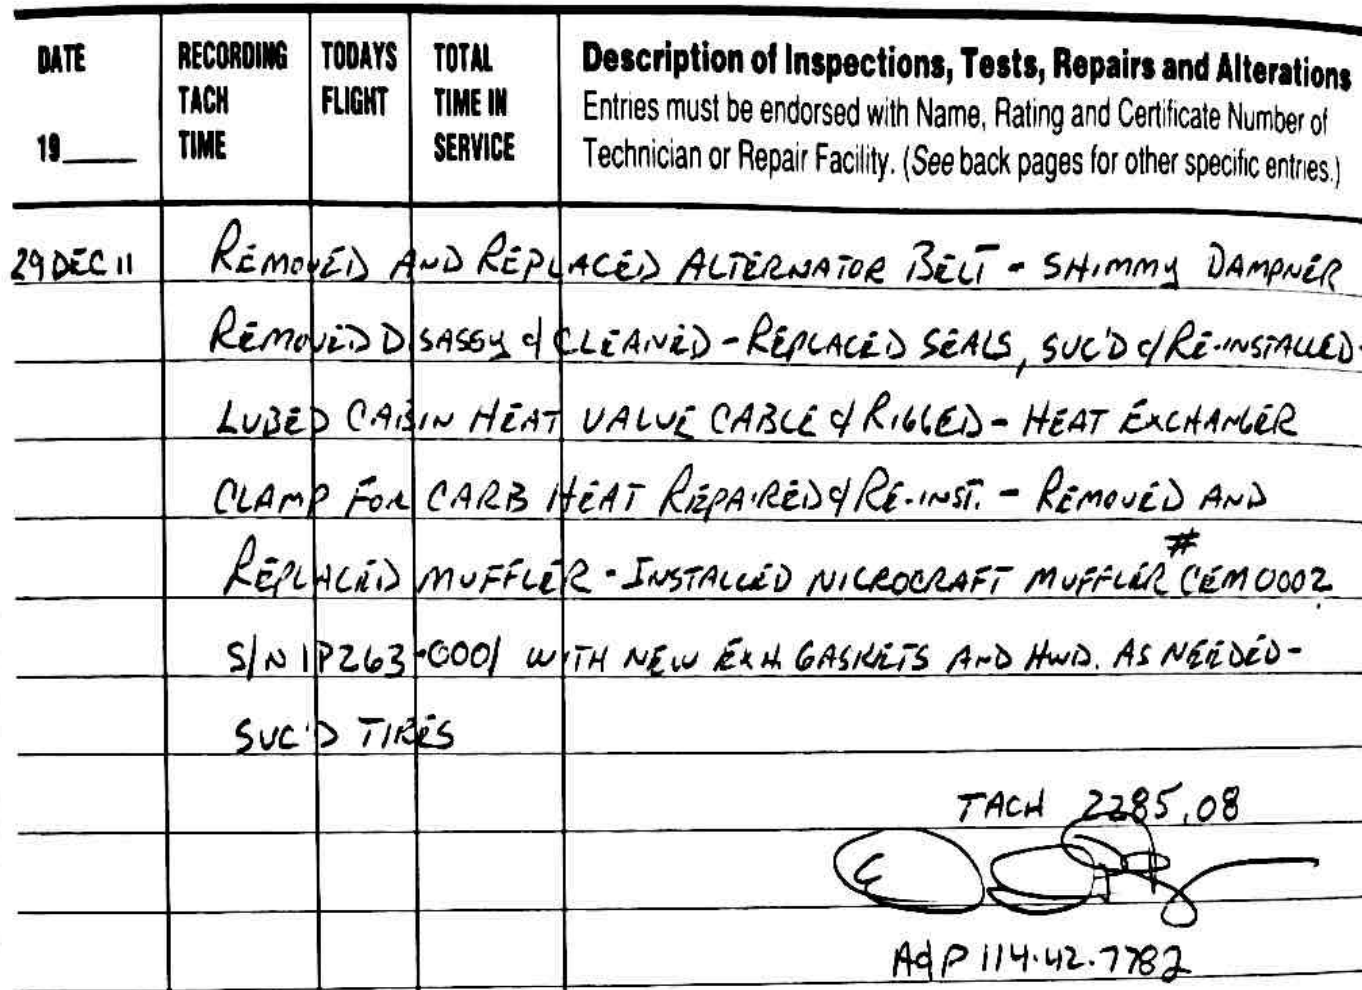 DATE
19____
RECORDING
TACH
TIME
TODAYS
FLIGHT
TOTAL
TIME IN
SERVICE
Description of Inspections, Tests, Repairs and Alterations
Entries must be endorsed with Name, Rating and Certificate Number of
Technician or Repair Facility. (See back pages for other specific entries.)
29 DEC 11 REMOVED AND REPLACED ALTERNATOR BELT - SHIMMY DAMPNER
REMOVED DISASSY & CLEANED - REPLACED SEALS, SVC'D & RE-INSTALLED -
LUBED CABIN HEAT VALVE CABLE & RIGGED - HEAT EXCHANGER
CLAMP FOR CARB HEAT REPAIRED & RE-INST. - REMOVED AND
REPLACED MUFFLER - INSTALLED NICROCRAFT MUFFLER # CEM0002
S/N 1P263-0001 WITH NEW EXH. GASKETS AND HWD. AS NEEDED -
SVC'D TIRES
TACH 2285.08
A&P 114.42.7782